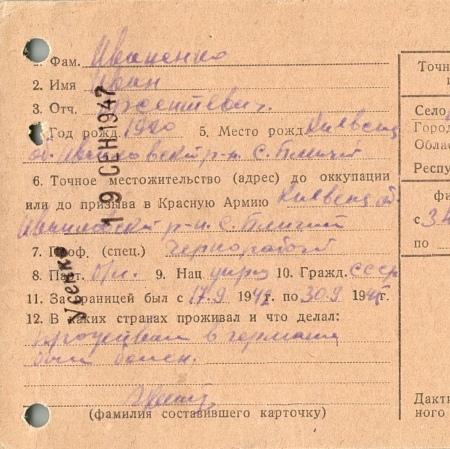 1. Фам. Иваненко
2. Имя Иван
3. Отч.
4. Год рожд. 1920 5. Место рожд. Киевск
об. Иванковский р-н С.
6. Точное местожительство (адрес) до оккупации
или до призыва в Красную Армию Киевск об.
Иванковский р-н. С.
7. Проф. (спец.) Чернорабочий
8. Парт. б/п. 9. Нац. укр 10. Гражд. СССР
11. За границей был с 17.9 1942 по 30.9 194
12. В каких странах проживал и что делал:
в германии
был
(фамилия составившего карточку)
19 СЕН 1947
Усенко
Точн
Село
Город
Облас
Респу
с
по
Дакти
ного